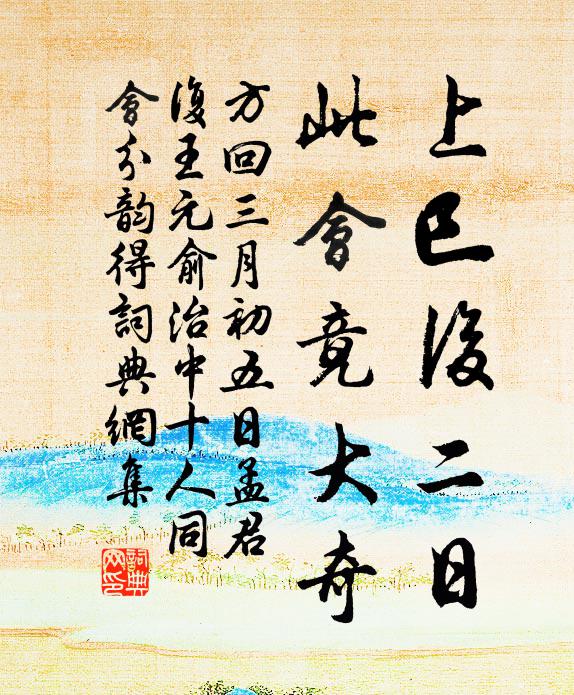 上巳後二日
此會竟大奇
方回三月初五日孟君
復王元俞治中十人同
會分韵得詞典網集
詞典網印